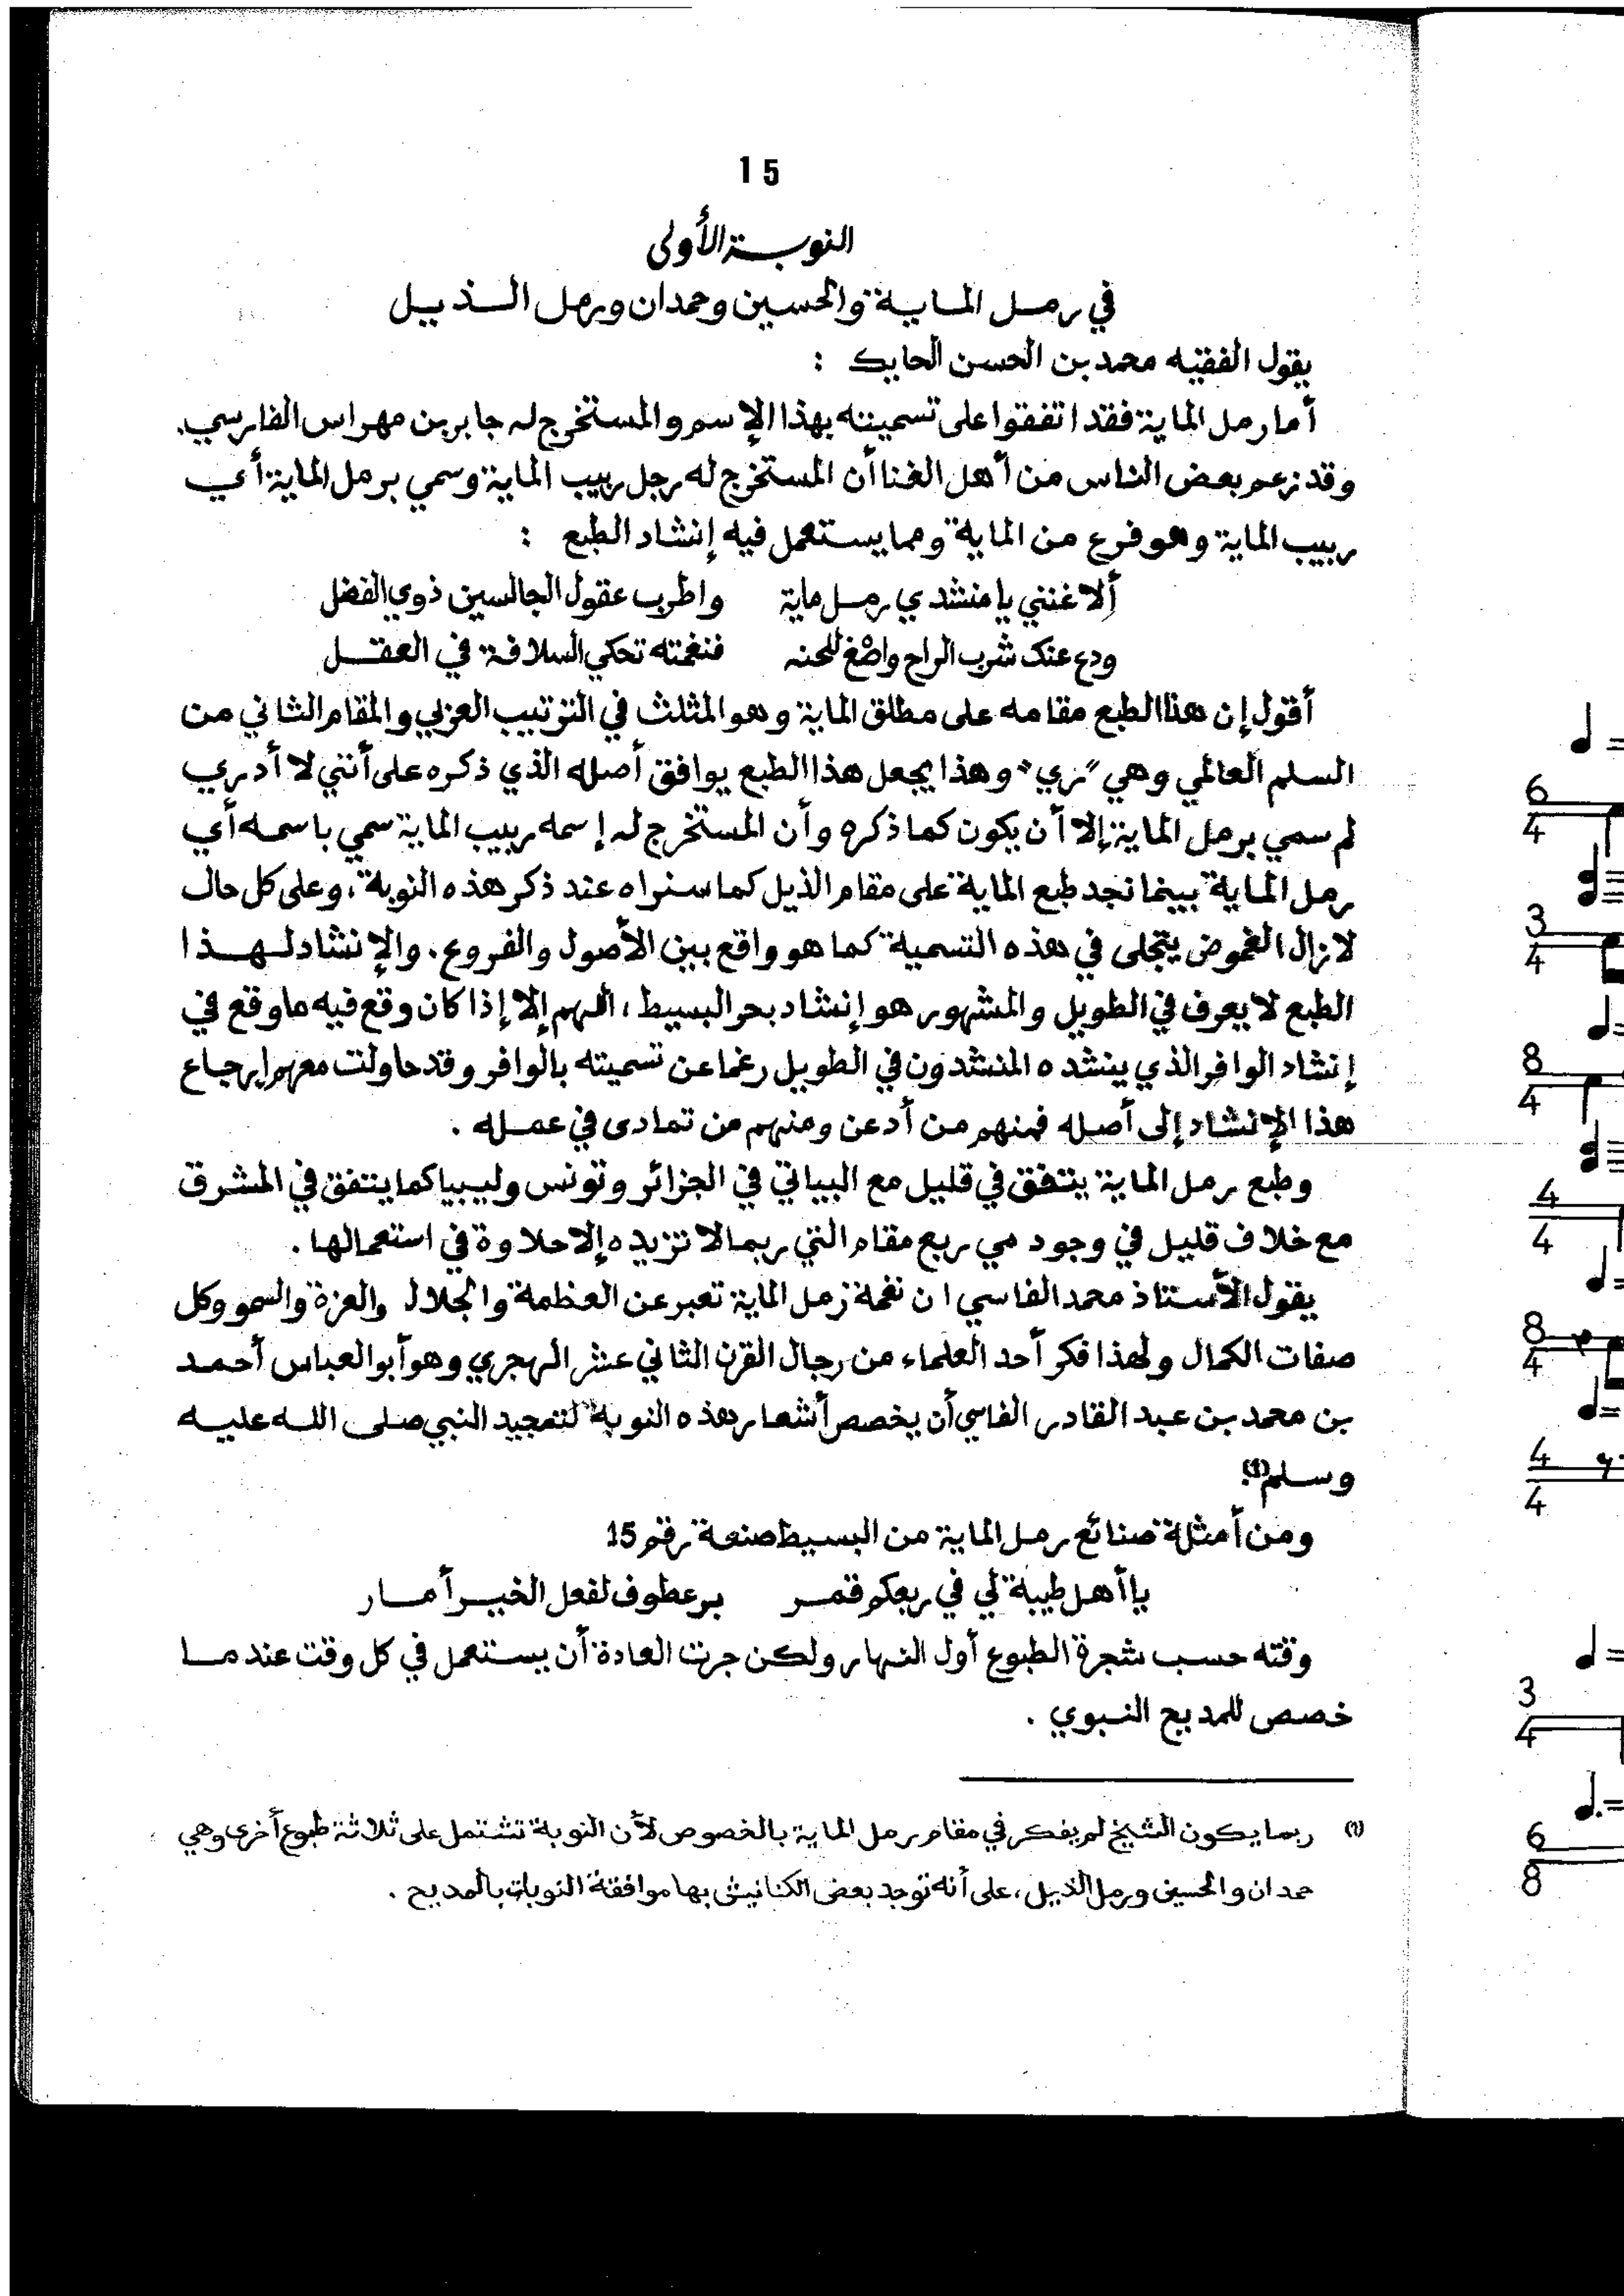 15
النوبة الأولى
في رمل الماية والحسين وحمدان ورمل الذيل
يقول الفقيه محمد بن الحسن الحايك :
أما رمل الماية فقد اتفقوا على تسميته بهذا الإسم والمستخرج له جابر بن مهراس الفارسي.
وقد زعم بعض الناس من أهل الغنا أن المستخرج له رجل ربيب الماية وسمي برمل الماية أي
ربيب الماية وهو فرع من الماية ومما يستعمل فيه إنشاد الطبع :
ألا غنني يا منشدي رمل ماية واطرب عقول الجالسين ذوي الفضل
ودع عنك شرب الراح واصْغ للحنه فنغمته تحكي السلافة في العقل
أقول إن هذا الطبع مقامه على مطلق الماية وهو المثلث في الترتيب العربي والمقام الثاني من
السلم العالمي وهي "ري" وهذا يجعل هذا الطبع يوافق أصله الذي ذكره على أنني لا أدري
لم سمي برمل الماية إلا أن يكون كما ذكره وأن المستخرج له إسمه ربيب الماية سمي باسمه أي
رمل الماية بينما نجد طبع الماية على مقام الذيل كما سنراه عند ذكر هذه النوبة، وعلى كل حال
لازال الغموض يتجلى في هذه التسمية كما هو واقع بين الأصول والفروع. والإنشاد لهذا
الطبع لا يعرف في الطويل والمشهور هو إنشاد بحر البسيط، اللهم إلا إذا كان وقع فيه ما وقع في
إنشاد الوافر الذي ينشده المنشدون في الطويل رغما عن تسميته بالوافر وقد حاولت معهم إرجاع
هذا الإنشاد إلى أصله فمنهم من أدعن ومنهم من تمادى في عمله .
وطبع رمل الماية يتفق في قليل مع البياتي في الجزائر وتونس وليبيا كما يتفق في المشرق
مع خلاف قليل في وجود مي ربع مقام التي ربما لا تزيده إلا حلاوة في استعمالها .
يقول الأستاذ محمد الفاسي ان نغمة رمل الماية تعبر عن العظمة والجلال والعزة والسمو وكل
صفات الكمال ولهذا فكر أحد العلماء من رجال القرن الثاني عشر الهجري وهو أبو العباس أحمد
بن محمد بن عبد القادر الفاسي أن يخصص أشعار هذه النوبة لتمجيد النبي صلى الله عليه
وسلم(1).
ومن أمثلة صنائع رمل الماية من البسيط صنعة رقم 15
يا أهل طيبة لي في ربعكم قمر برعطوف لفعل الخير أمار
وقته حسب شجرة الطبوع أول النهار ولكن جرت العادة أن يستعمل في كل وقت عندما
خصص للمديح النبوي .
(1) ربما يكون الشيخ لم يفكر في مقام رمل الماية بالخصوص لأن النوبة تشتمل على ثلاثة طبوع أخرى وهي
حمدان والحسين ورمل الذيل، على أنه توجد بعض الكنانيش بها موافقة النوبات بالمديح .
6
4
3
4
8
4
4
4
8
4
4
4
3
4
6
8